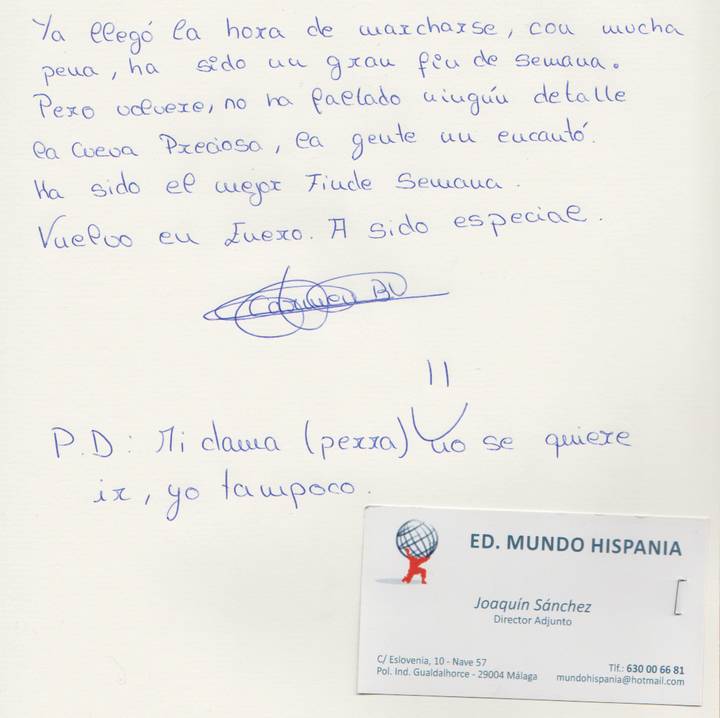 Ya llegó la hora de marcharse, con mucha
pena, ha sido un gran fin de semana.
Pero volvere, no ha faltado ningún detalle
la Cueva Preciosa, la gente un encantó.
Ha sido el mejor Finde Semana.
Vuelvo en Enero. A sido especial.
Carmen BV
P.D: Mi dama (perra) no se quiere
ir, yo tampoco.
ED. MUNDO HISPANIA
Joaquín Sánchez
Director Adjunto
C/ Eslovenia, 10 - Nave 57
Pol. Ind. Gualdalhorce - 29004 Málaga
Tlf.: 630 00 66 81
mundohispania@hotmail.com